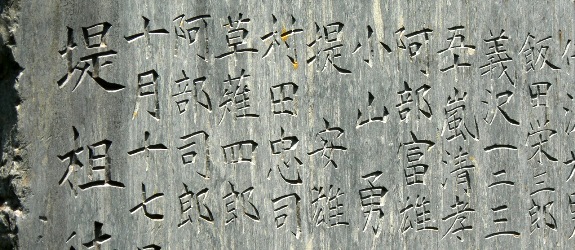 飯田栄三郎
義沢一二三
五十嵐清孝
阿部富雄
小山勇
堤安雄
村田忠司
草薙四郎
阿部司郎
十月十七
堤祖